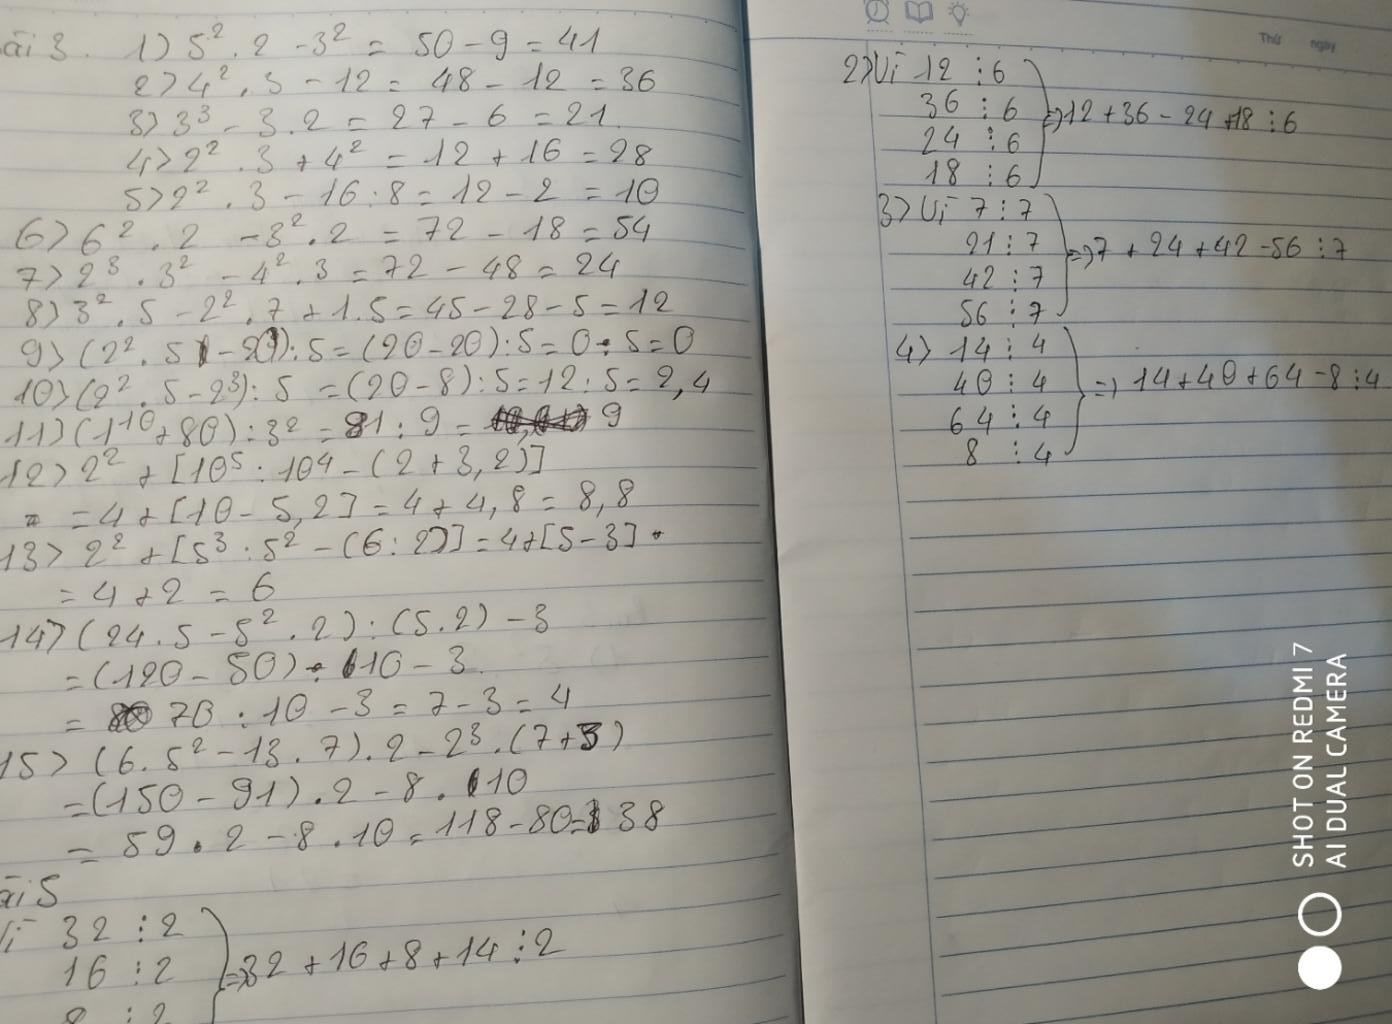 ài 3. 1) 5² . 2 - 3² = 50 - 9 = 41
2> 4² . 3 - 12 = 48 - 12 = 36
3> 3³ - 3 . 2 = 27 - 6 = 21.
4> 2² . 3 + 4² = 12 + 16 = 28
5> 2² . 3 - 16 : 8 = 12 - 2 = 10
6> 6² . 2 - 3² . 2 = 72 - 18 = 54
7> 2³ . 3² - 4² . 3 = 72 - 48 = 24
8) 3² . 5 - 2² . 7 + 1.5 = 45 - 28 - 5 = 12
9> (2² . 5 - 20) : 5 = (20 - 20) : 5 = 0 : 5 = 0
10> (2² . 5 - 2³) : 5 = (20 - 8) : 5 = 12 : 5 = 2,4
11) (1¹⁰ + 80) : 3² = 81 : 9 = 9
12> 2² + [10⁵ : 10⁴ - (2 + 3,2)]
= 4 + [10 - 5,2] = 4 + 4,8 = 8,8
13> 2² + [5³ : 5² - (6 : 2)] = 4 + [5 - 3]
= 4 + 2 = 6
14> (24 . 5 - 5² . 2) : (5.2) - 3
= (120 - 50) : 10 - 3
= 70 : 10 - 3 = 7 - 3 = 4
15> (6 . 5² - 13 . 7) . 2 - 2³ . (7+3)
= (150 - 91) . 2 - 8 . 10
= 59 . 2 - 8 . 10 = 118 - 80 = 38
ài 5
ì 32 ⋮ 2
16 ⋮ 2 => 32 + 16 + 8 + 14 ⋮ 2
8 ⋮ 2
Thứ ngày
2> Vì 12 ⋮ 6
36 ⋮ 6 => 12 + 36 - 24 + 18 ⋮ 6
24 ⋮ 6
18 ⋮ 6
3> Vì 7 ⋮ 7
21 ⋮ 7 => 7 + 24 + 42 - 56 ⋮ 7
42 ⋮ 7
56 ⋮ 7
4> 14 ⋮ 4
40 ⋮ 4 => 14 + 40 + 64 - 8 ⋮ 4
64 ⋮ 4
8 ⋮ 4
SHOT ON REDMI 7
AI DUAL CAMERA